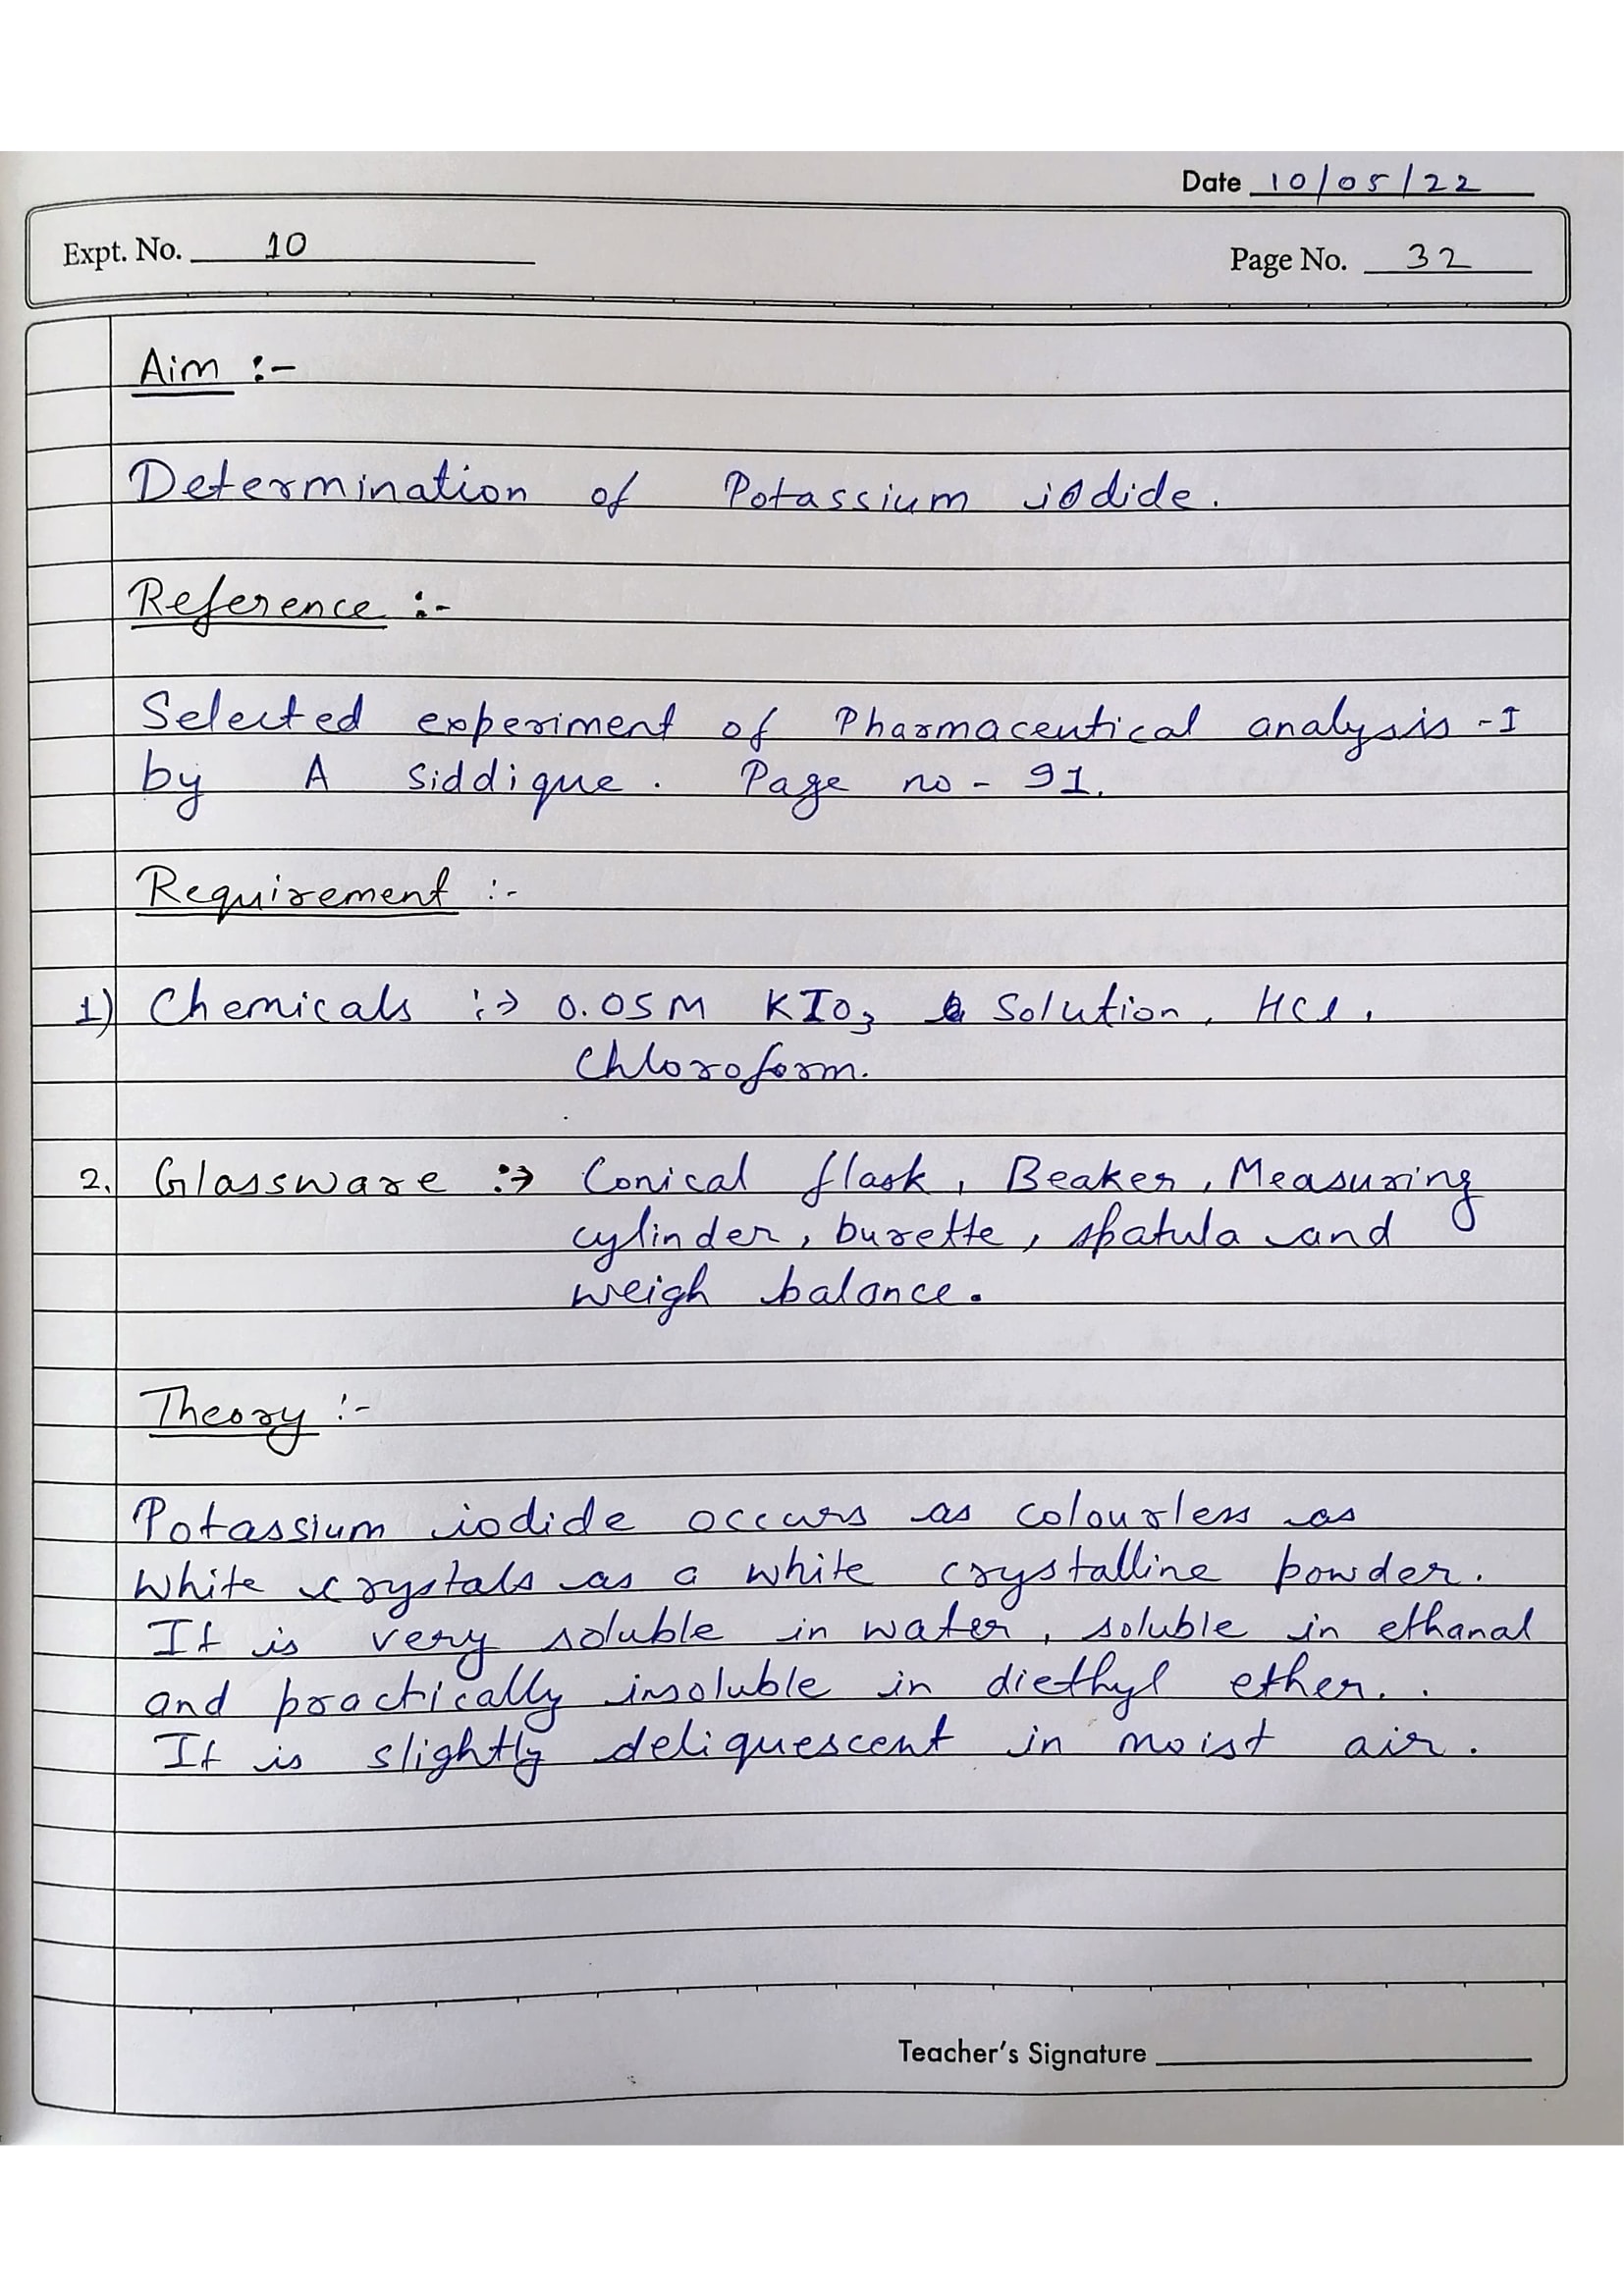 Date 10/05/22
Expt. No. 10
Page No. 32
Aim :-
Determination of Potassium iodide.
Reference :-
Selected experiment of Pharmaceutical analysis -I
by A Siddique. Page no - 91.
Requirement :-
1) Chemicals :→ 0.05M KIO₃ Solution, HCl,
Chloroform.
2. Glassware :→ Conical flask, Beaker, Measuring
cylinder, burette, spatula and
weigh balance.
Theory :-
Potassium iodide occurs as colourless as
white crystals as a white crystalline powder.
It is very soluble in water, soluble in ethanal
and practically insoluble in diethyl ether..
It is slightly deliquescent in moist air.
Teacher's Signature